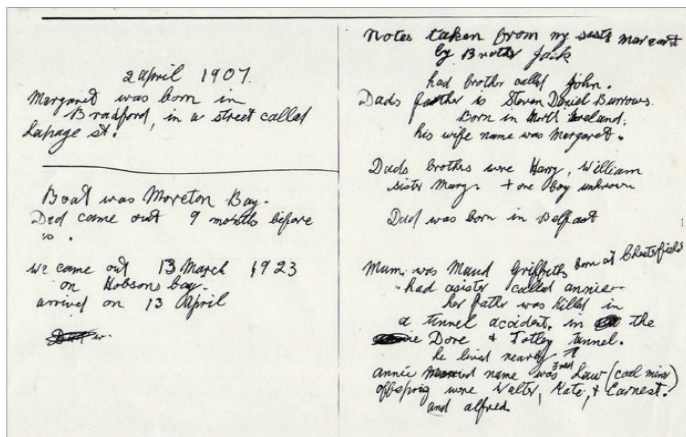 2 April 1907.
Margaret was born in
Bradford, in a street called
Lapage st.
Boat was Moreton Bay.
Dad came out 9 months before
we came out 13 March 1923
on Hobsons bay.
arrived on 13 April
Notes taken from my sister Margaret
by Brother Jack
had brother called John.
Dads father is Steven Daniel Burrows.
Born in North Ireland.
his wife name was Margaret.
Dads brothers were Harry, William
sister Mary. + one boy unknown
Dad was born in Belfast
Mum was Maud Griffeths born at Chesterfield
had a sister called annie
her father was killed in
a tunnel accident. in the
Dore & Totley tunnel.
he lived nearby
annie name was Law (coal miner)
offsprig were Walter, Kate, & Earnest.
and alfred.